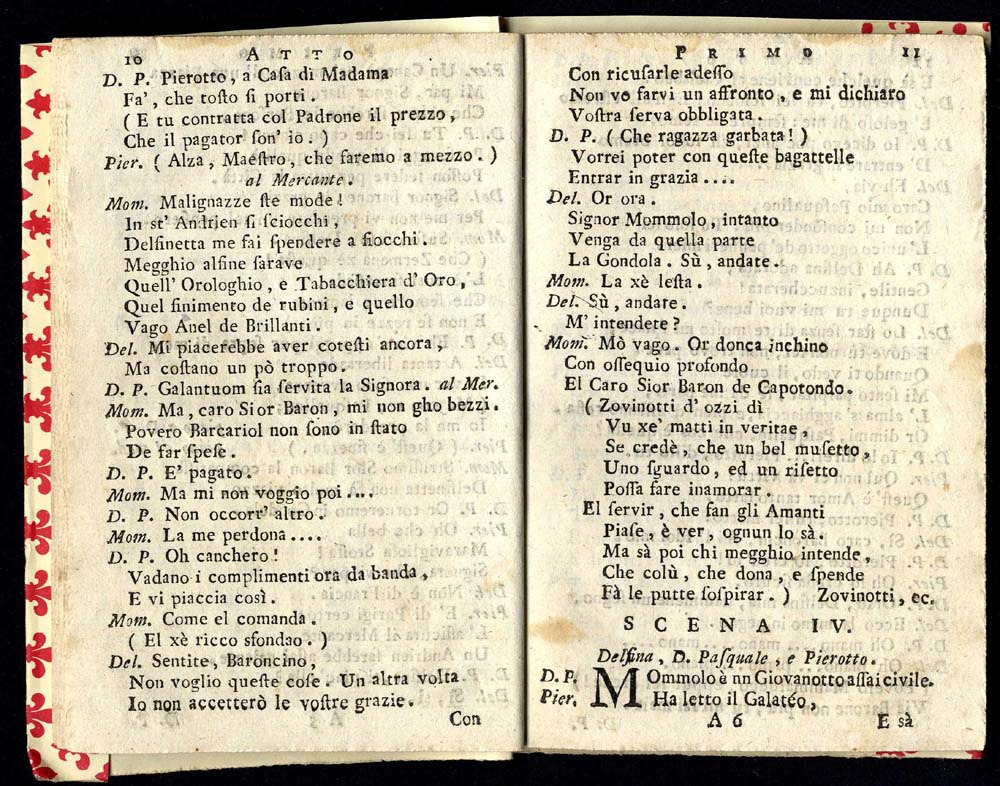 10 ATTO
D. P. Pierotto, a Caſa di Madama
Fa', che toſto ſi porti.
( E tu contratta col Padrone il prezzo,
Che il pagator ſon' io. )
Pier. ( Alza, Maeſtro, che faremo a mezzo. )
al Mercante.
Mom. Malignazze ſte mode!
In st' Andrien ſi ſciocchi,
Delfinetta me fai ſpendere a fiocchi.
Megghio alfine ſarave
Quell' Orologhio, e Tabacchiera d' Oro,
Quel finimento de rubini, e quello
Vago Anel de Brillanti.
Del. Mi piacerebbe aver coteſti ancora,
Ma coſtano un pò troppo.
D. P. Galantuom ſia ſervita la Signora. al Mer.
Mom. Ma, caro Sior Baron, mi non gho bezzi.
Povero Barcariol non ſono in ſtato
De far ſpeſe.
D. P. E' pagato.
Mom. Ma mi non voggio poi ....
D. P. Non occorr' altro.
Mom. La me perdona ....
D. P. Oh canchero!
Vadano i complimenti ora da banda,
E vi piaccia così.
Mom. Come el comanda.
( El xè ricco sfondao. )
Del. Sentite, Baroncino,
Non voglio queſte coſe. Un altra volta.
Io non accetterò le voſtre grazie.
Con
PRIMO 11
Con ricuſarle adeſſo
Non vo farvi un affronto, e mi dichiaro
Voſtra ſerva obbligata.
D. P. ( Che ragazza garbata! )
Vorrei poter con queſte bagattelle
Entrar in grazia ....
Del. Or ora.
Signor Mommolo, intanto
Venga da quella parte
La Gondola. Sù, andate.
Mom. La xè leſta.
Del. Sù, andare.
M' intendete?
Mom. Mò vago. Or donca inchino
Con oſſequio profondo
El Caro Sior Baron de Capotondo.
( Zovinotti d' ozzi dì
Vu xe' matti in veritae,
Se credè, che un bel muſetto,
Uno ſguardo, ed un riſetto
Poſſa fare inamorar.
El ſervir, che fan gli Amanti
Piaſe, è ver, ognun lo sà.
Ma sà poi chi megghio intende,
Che colù, che dona, e ſpende
Fà le putte ſoſpirar. ) Zovinotti, ec.
SCENA IV.
Delfina, D. Paſquale, e Pierotto.
D. P. MOmmolo è nn Giovanotto aſſai civile.
Pier. Ha letto il Galatéo,
A 6 E sà